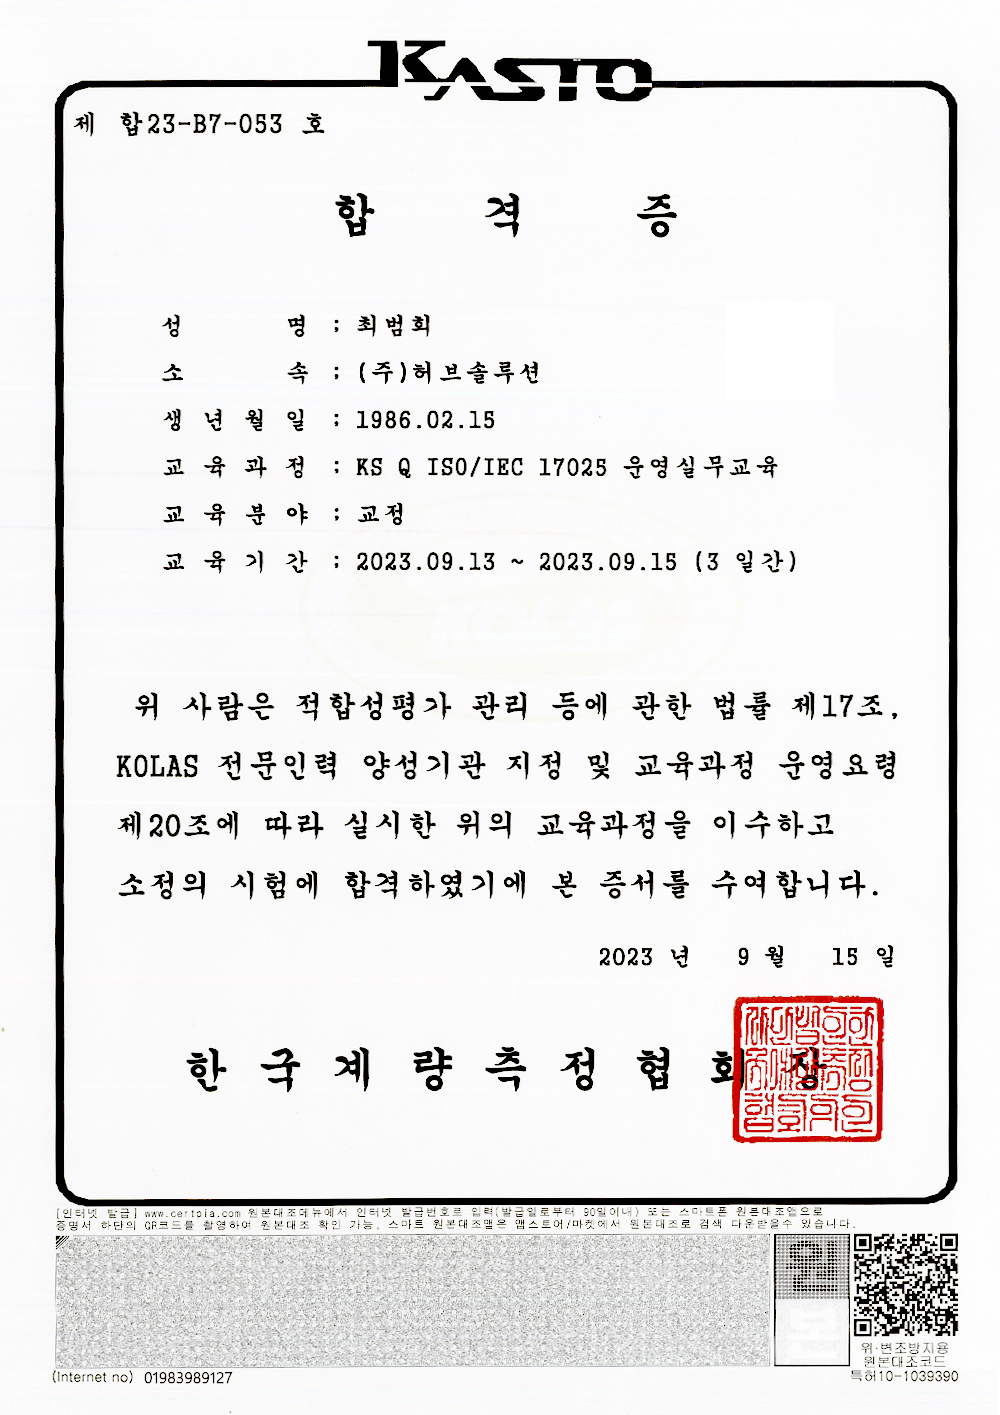 KASTO
제 합23-B7-053 호
합 격 증
성 명 : 최범희
소 속 : (주)허브솔루션
생 년 월 일 : 1986.02.15
교 육 과 정 : KS Q ISO/IEC 17025 운영실무교육
교 육 분 야 : 교정
교 육 기 간 : 2023.09.13 ~ 2023.09.15 (3 일간)
KOLAS
위 사람은 적합성평가 관리 등에 관한 법률 제17조,
KOLAS 전문인력 양성기관 지정 및 교육과정 운영요령
제20조에 따라 실시한 위의 교육과정을 이수하고
소정의 시험에 합격하였기에 본 증서를 수여합니다.
2023 년 9 월 15 일
한 국 계 량 측 정 협 회 장
[인터넷 발급] www.certpia.com 원본대조메뉴에서 인터넷 발급번호로 입력(발급일로부터 90일이내) 또는 스마트폰 원본대조앱으로
증명서 하단의 QR코드를 촬영하여 원본대조 확인 가능, 스마트 원본대조앱은 앱스토어/마켓에서 원본대조로 검색 다운받을수 있습니다.
원
본
위·변조방지용
원본대조코드
특허10-1039390
(Internet no) 01983989127